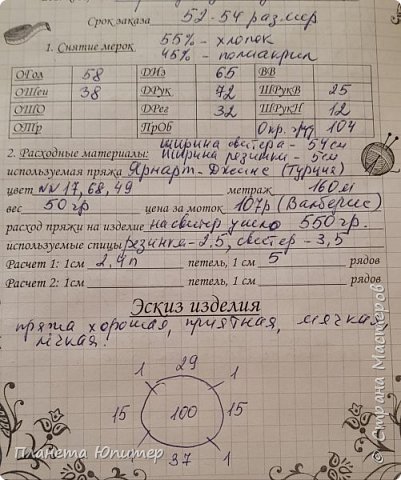 Срок заказа 52-54 размер
55% - хлопок
1. Снятие мерок 45% - полиакрил
ОГол 58 ДИз 65 ВВ
ОШеи 38 ДРук 72 ШРукВ 25
ОШО ДРег 32 ШРукН 12
ОТр ПрОб Окр. гр 104
ширина свитера - 54см
2. Расходные материалы: ширина резинки - 5см
используемая пряжа Ярнарт-Джинс (Турция)
цвет №№ 17, 68, 49 метраж 160м
вес 50гр цена за моток 107р (Валберис)
расход пряжи на изделие на свитер ушло 550гр.
используемые спицы резинка - 2,5, свитер - 3,5
Расчет 1: 1см 2,4п петель, 1 см 5 рядов
Расчет 2: 1см петель, 1 см рядов
Эскиз изделия
пряжа хорошая, приятная, мягкая,
лёгкая.
29
1 1
15 100 15
1 37 1
Планета Юпитер
© Страна Мастеров